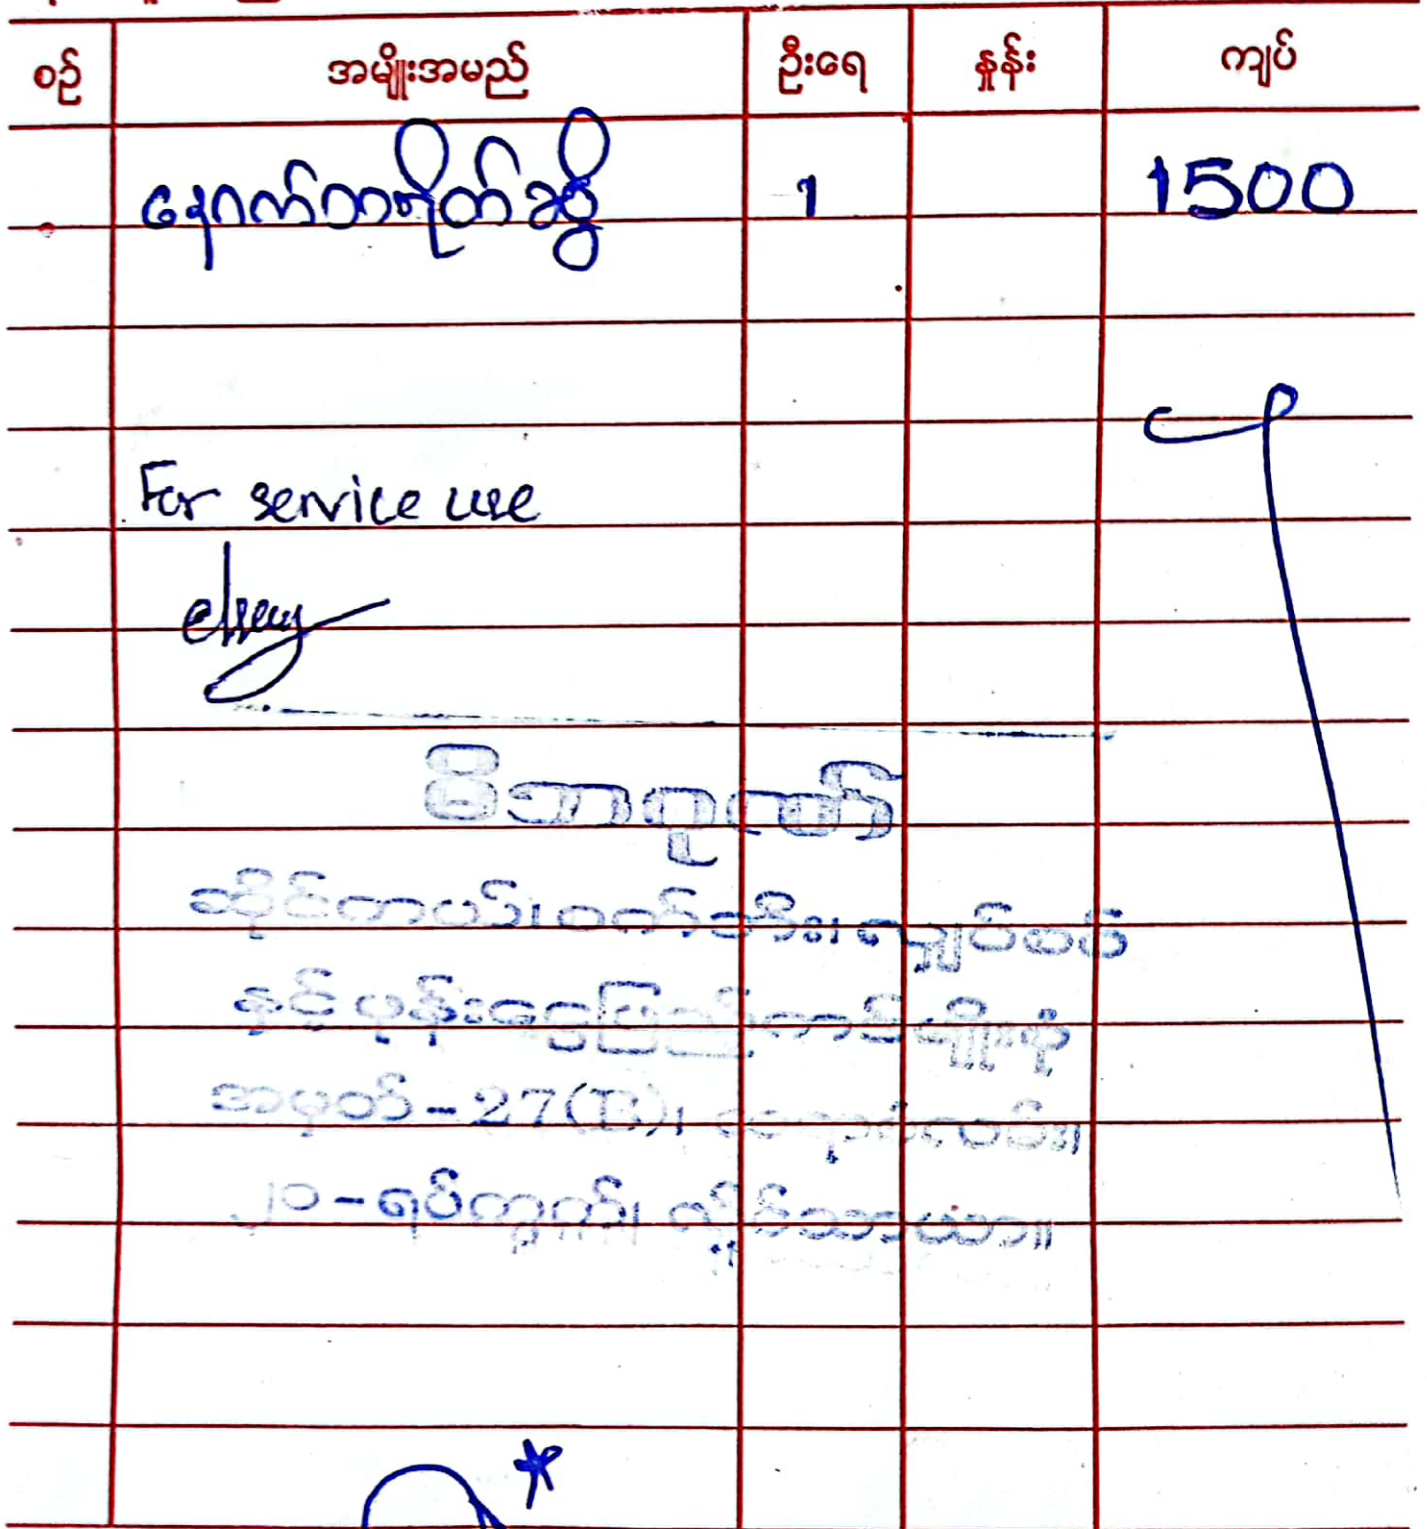 စဉ် အမျိုးအမည် ဦးရေ နှုန်း ကျပ်
နောက်ဘရိတ်ဆွိ 1 1500
For service use
မိဘဂုဏ်
ဆိုင်ကယ်၊ စက်ဘီး၊ လျှပ်စစ်
နှင့် ဖုန်းငွေဖြည့်ကဒ်မျိုးစုံ
အမှတ်-27(B)၊
၂၀-ရပ်ကွက်၊ လှိုင်သာယာ။